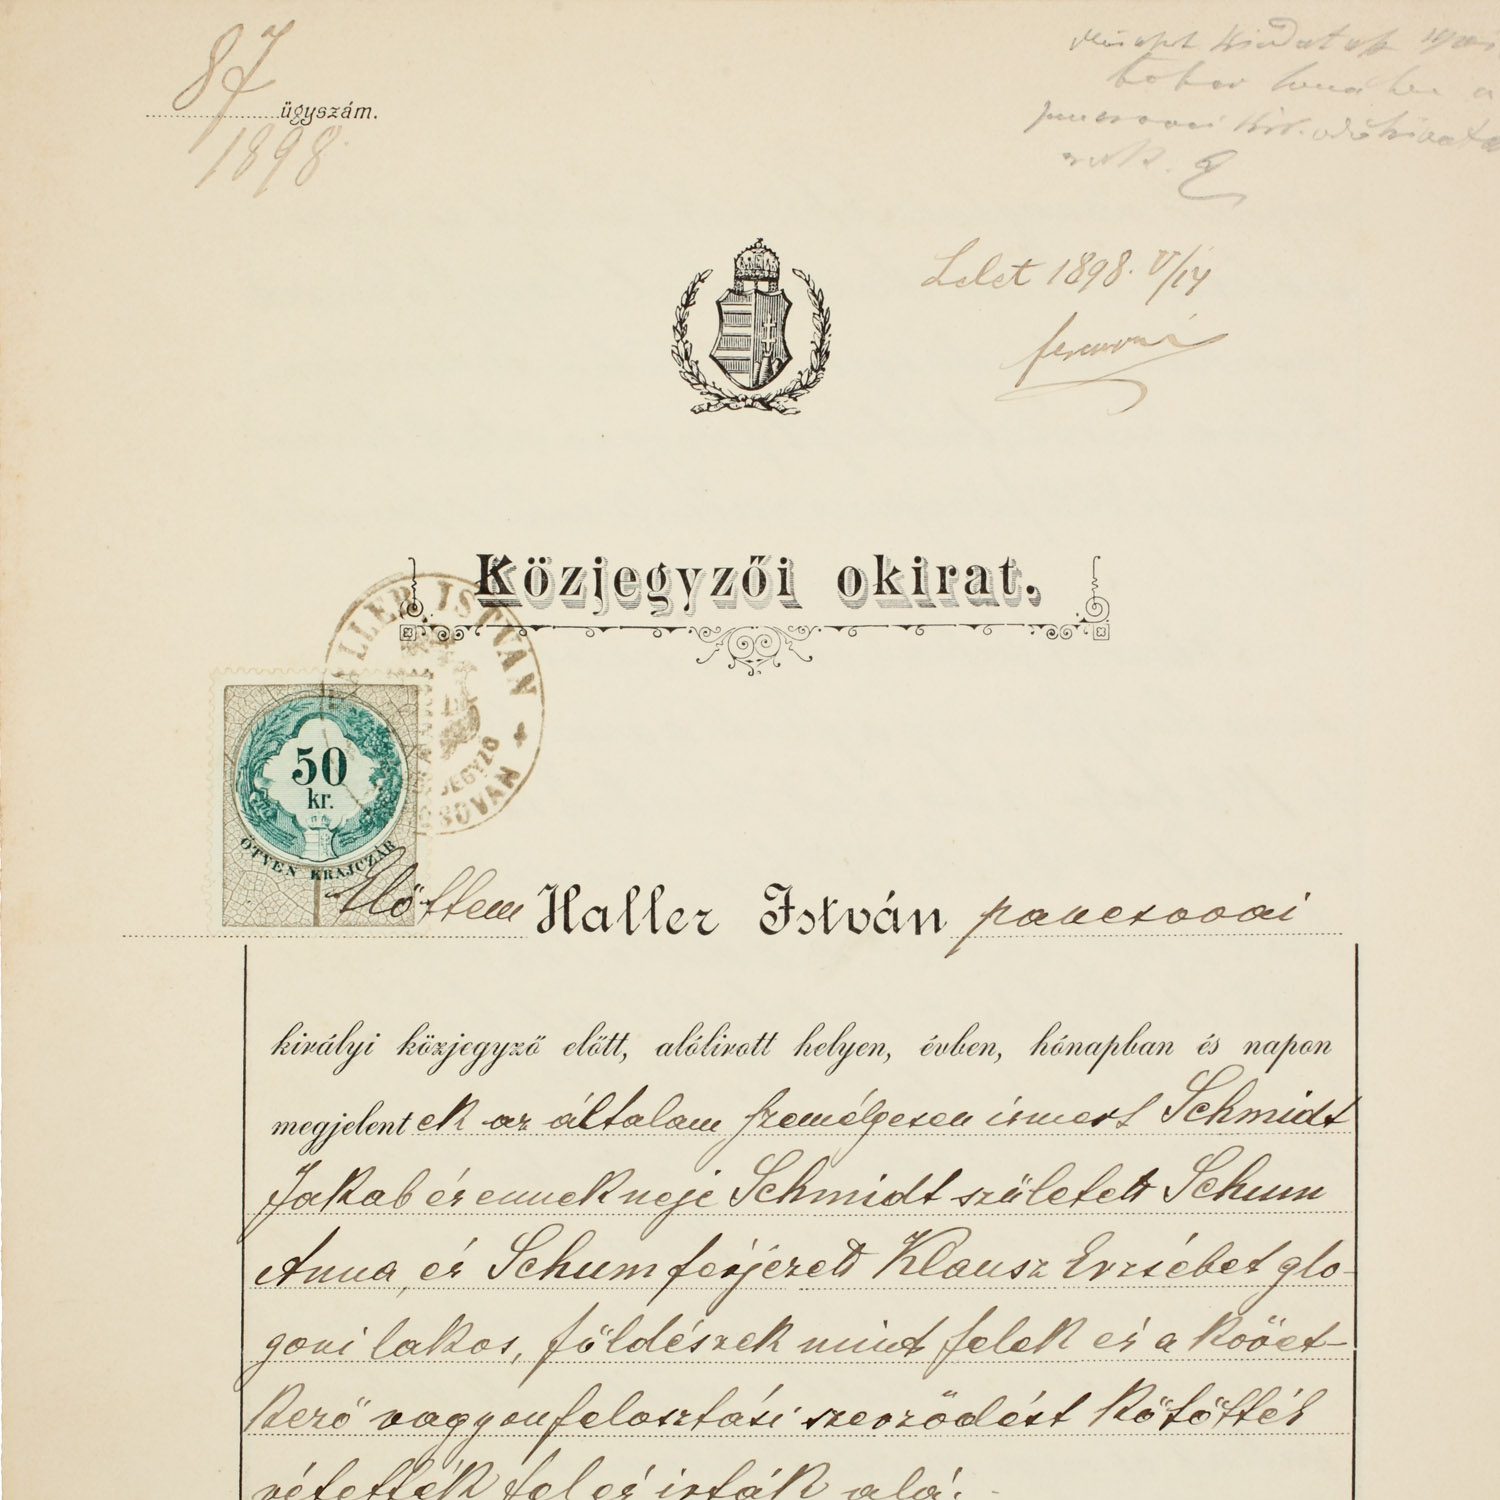 87
ügyszám.
1898.
Lelet 1898. V/14
Közjegyzői okirat.
HALLER ISTVÁN
50
kr.
ÖTVEN KRAJCZÁR
Előttem Haller István pancsovai
királyi közjegyző előtt, alólirott helyen, évben, hónapban és napon
megjelentek az általam személyesen ismert Schmidt
Jakab és ennek neje Schmidt született Schum
Anna, és Schum férjezett Klausz Erzsébet glo-
goni lakos, földészek mint felek és a követ-
kező vagyonfelosztási szerződést kötötték
vétették fel és irták alá.